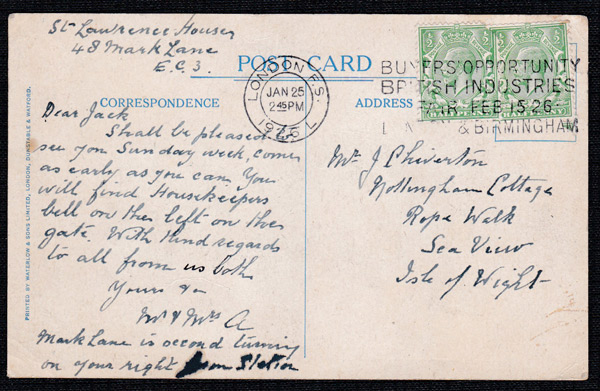 St Lawrence House
48 Mark Lane
E.C.3.
POST CARD
CORRESPONDENCE
ADDRESS
LONDON F.S.
JAN 25
2.45PM
1926
BUYERS OPPORTUNITY
BRITISH INDUSTRIES
FAIR FEB 15-26
LONDON & BIRMINGHAM
Dear Jack
Shall be pleased
see you Sunday week, come
as early as you can. You
will find Housekeepers
bell on the left on the
gate. With kind regards
to all from us both
Yours
Mr & Mrs A
Mark Lane is second turning
on your right from Station
Mr J Chiverton
Nottingham Cottage
Rope Walk
Sea View
Isle of Wight
PRINTED BY WATERLOW & SONS LIMITED, LONDON, DUNSTABLE & WATFORD.